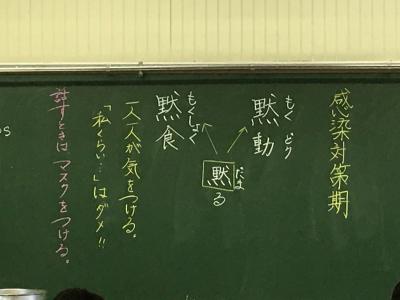 感染対策期
もく どう
黙動
だま
黙る
もくしょく
黙食
一人一人が気をつける。
「私くらい…」はダメ!!
話すときは マスクをつける。